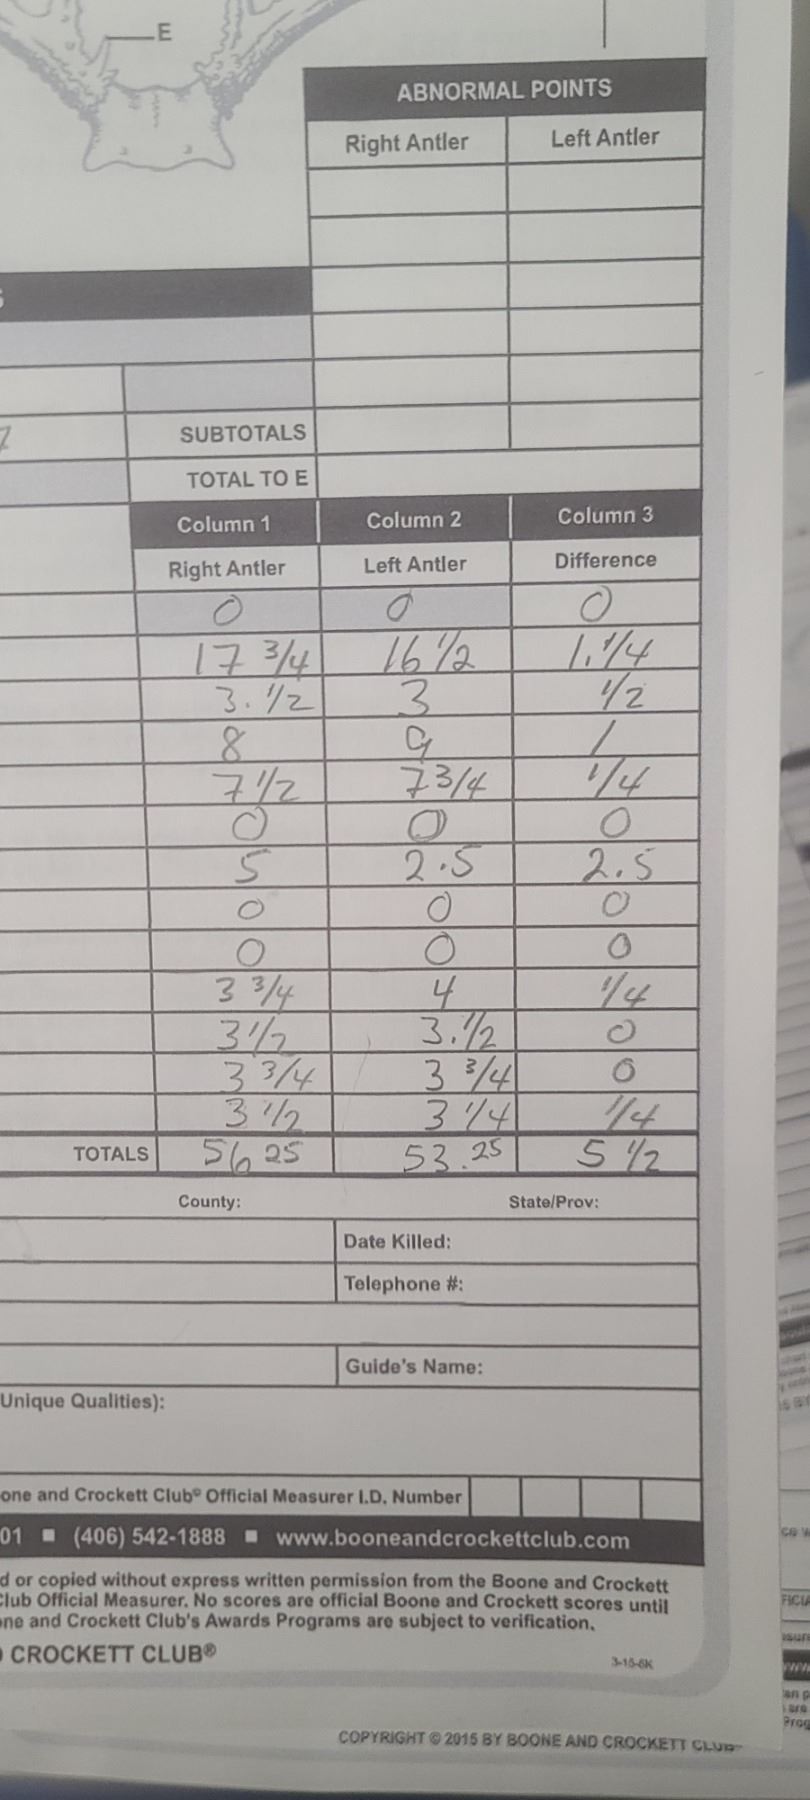 E
ABNORMAL POINTS
Right Antler Left Antler
SUBTOTALS
TOTAL TO E
Column 1 Column 2 Column 3
Right Antler Left Antler Difference
0 0 0
17 3/4 16 1/2 1.1/4
3.1/2 3 1/2
8 9 1
7 1/2 7 3/4 1/4
0 0 0
5 2.5 2.5
0 0 0
0 0 0
3 3/4 4 1/4
3 1/2 3.1/2 0
3 3/4 3 3/4 0
3 1/2 3 1/4 1/4
TOTALS 56 25 53.25 5 1/2
County: State/Prov:
Date Killed:
Telephone #:
Guide's Name:
Unique Qualities):
one and Crockett Club® Official Measurer I.D. Number
01 ■ (406) 542-1888 ■ www.booneandcrockettclub.com
d or copied without express written permission from the Boone and Crockett
Club Official Measurer. No scores are official Boone and Crockett scores until
one and Crockett Club's Awards Programs are subject to verification.
CROCKETT CLUB®
3-15-6K
COPYRIGHT © 2015 BY BOONE AND CROCKETT CLUB